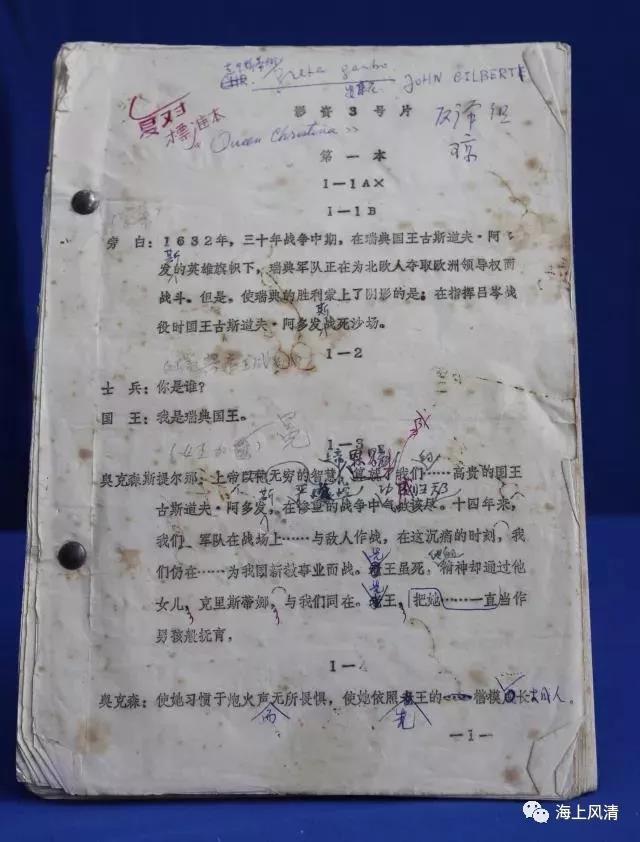 Greta Garbo
JOHN GILBERT
影资3号片
复对
标准本
《Queen Christina》
第一本
I—1A×
I—1B
旁 白：1632年，三十年战争中期，在瑞典国王古斯道夫·阿
斯
发的英雄旗帜下，瑞典军队正在为北欧人夺取欧洲领导权而
战斗。但是，使瑞典的胜利蒙上了阴影的是：在指挥吕岑战
斯
役时国王古斯道夫·阿多发战死沙场。
I—2
士 兵：你是谁？
国 王：我是瑞典国王。
I—3
奥克森斯提尔那：上帝以他无穷的智慧
我们……高贵的国王
斯
古斯道夫·阿多发，在
的战争中
十四年来，
我们、军队在战场上……与敌人作战，在这沉痛的时刻，我
们仍在……为我国
事业而战。
先
王虽死，
精神却通过他
先
女儿，克里斯蒂娜，与我们同在。
王，把她……一直当作
男孩般抚育，
I—4
奥克森：使她习惯于炮火声无所畏惧，使她依照老王的
楷模
长大成人。
而
先
—1—
海上风清